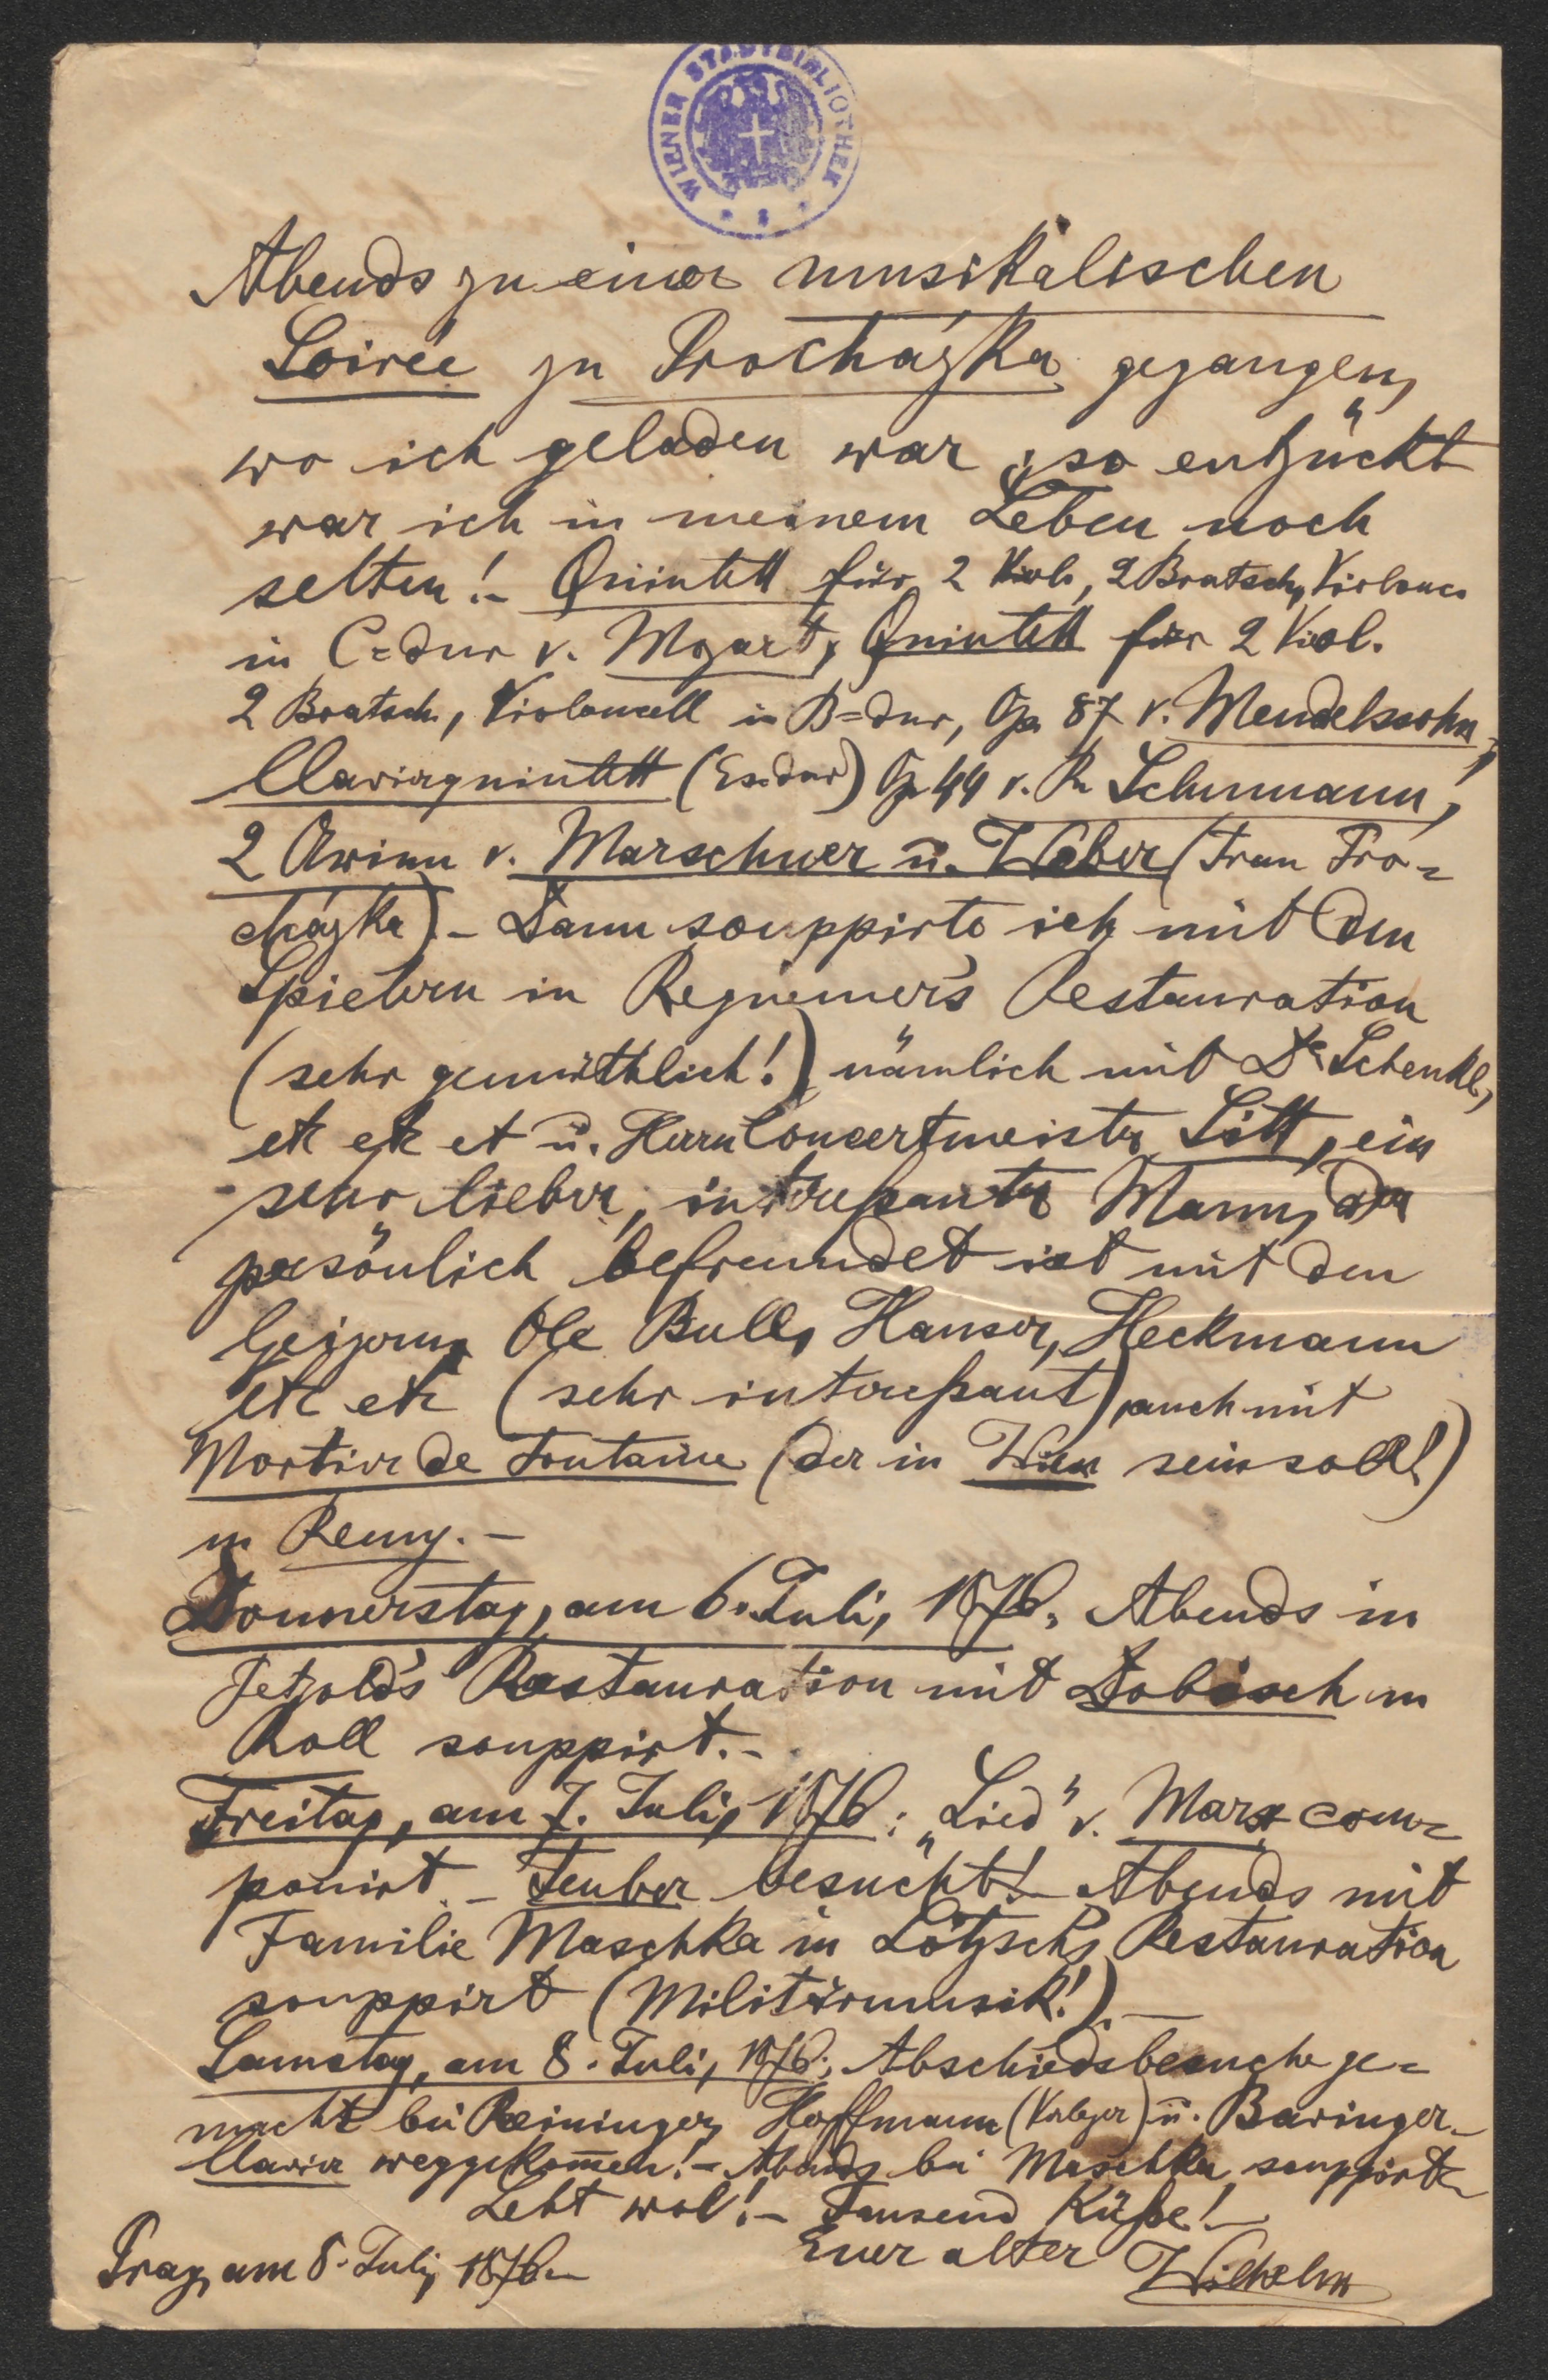 WIENER STADTBIBLIOTHEK
Abends zu einer musikalischen
Soirée zu Procházka gegangen,
wo ich geladen war; so entzückt
war ich in meinem Leben noch
selten! - Quintett für 2 Viol., 2 Bratsch, Violonc.
in C=dur v. Mozart, Quintett für 2 Viol.
2 Bratsch., Violoncell in B=dur, Op 87 v. Mendelssohn,
Clavierquintett (Es=dur) Op 44 v. R. Schumann,
2 Arien v. Marschner u. Weber (Frau Pro=
cházka). - Dann souppirte ich mit den
Spielern in Restauration
(sehr gemüthlich!) nämlich mit Dr Schenkl,
etc etc et u. Herrn Concertmeister Sitt, ein
sehr lieber, intereßanter Mann, der
persönlich befreundet ist mit den
Geigern, Ole Bull, Hauser, Heckmann
etc etc (sehr intereßant), auch mit
Mortier de Fontaine (der in Wien sein soll!)
u Remy. -
Donnerstag, am 6. Juli, 1876. Abends in
Petzold's Restauration mit Dobisch u
Roll souppirt. -
Freitag, am 7. Juli, 1876: „Lied" v. Marx com=
ponirt. - Teuber besucht! - Abends mit
Familie Maschka in Lötzsch's Restauration
souppirt (Militärmusik!). -
Samstag, am 8. Juli, 1876: Abschiedsbesuche ge=
macht bei Reininger, Hoffmann (Verleger) u. Baringer. -
Clavier weggekom̅en! - Abends bei Maschka souppirt. -
Lebt wol! - Tausend Küße! -
Euer alter Wilhelm
Prag, am 8. Juli, 1876. -